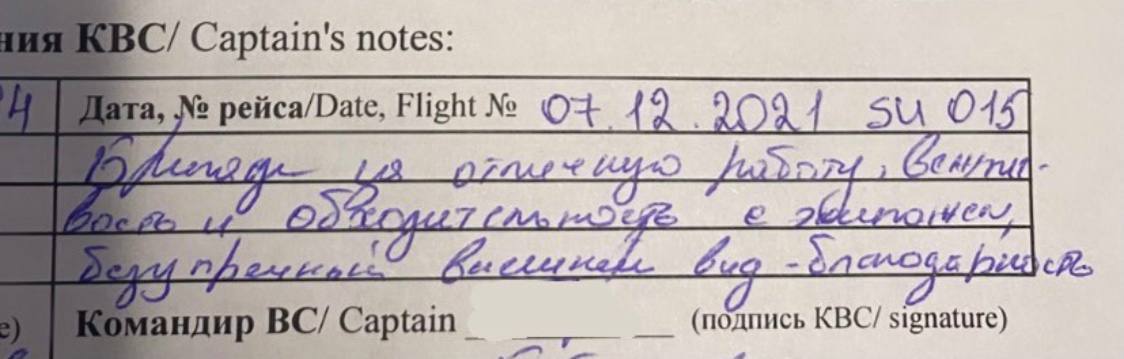 ния КВС/ Captain's notes:
4 Дата, № рейса/Date, Flight № 07.12.2021 SU 015
Бригаде за отличную работу, вежли-
вость и обходительность с экипажем,
безупречный внешний вид - благодарность
е) Командир ВС/ Captain (подпись КВС/ signature)